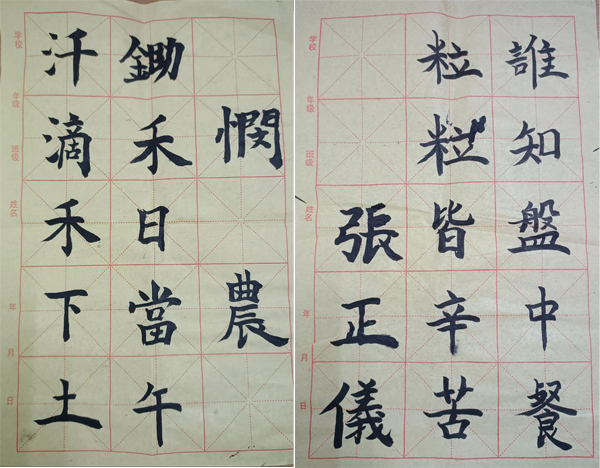 憫農
鋤禾日當午
汗滴禾下土
學校
年級
班級
姓名
年月日
誰知盤中餐
粒粒皆辛苦
張正儀
學校
年級
班級
姓名
年月日